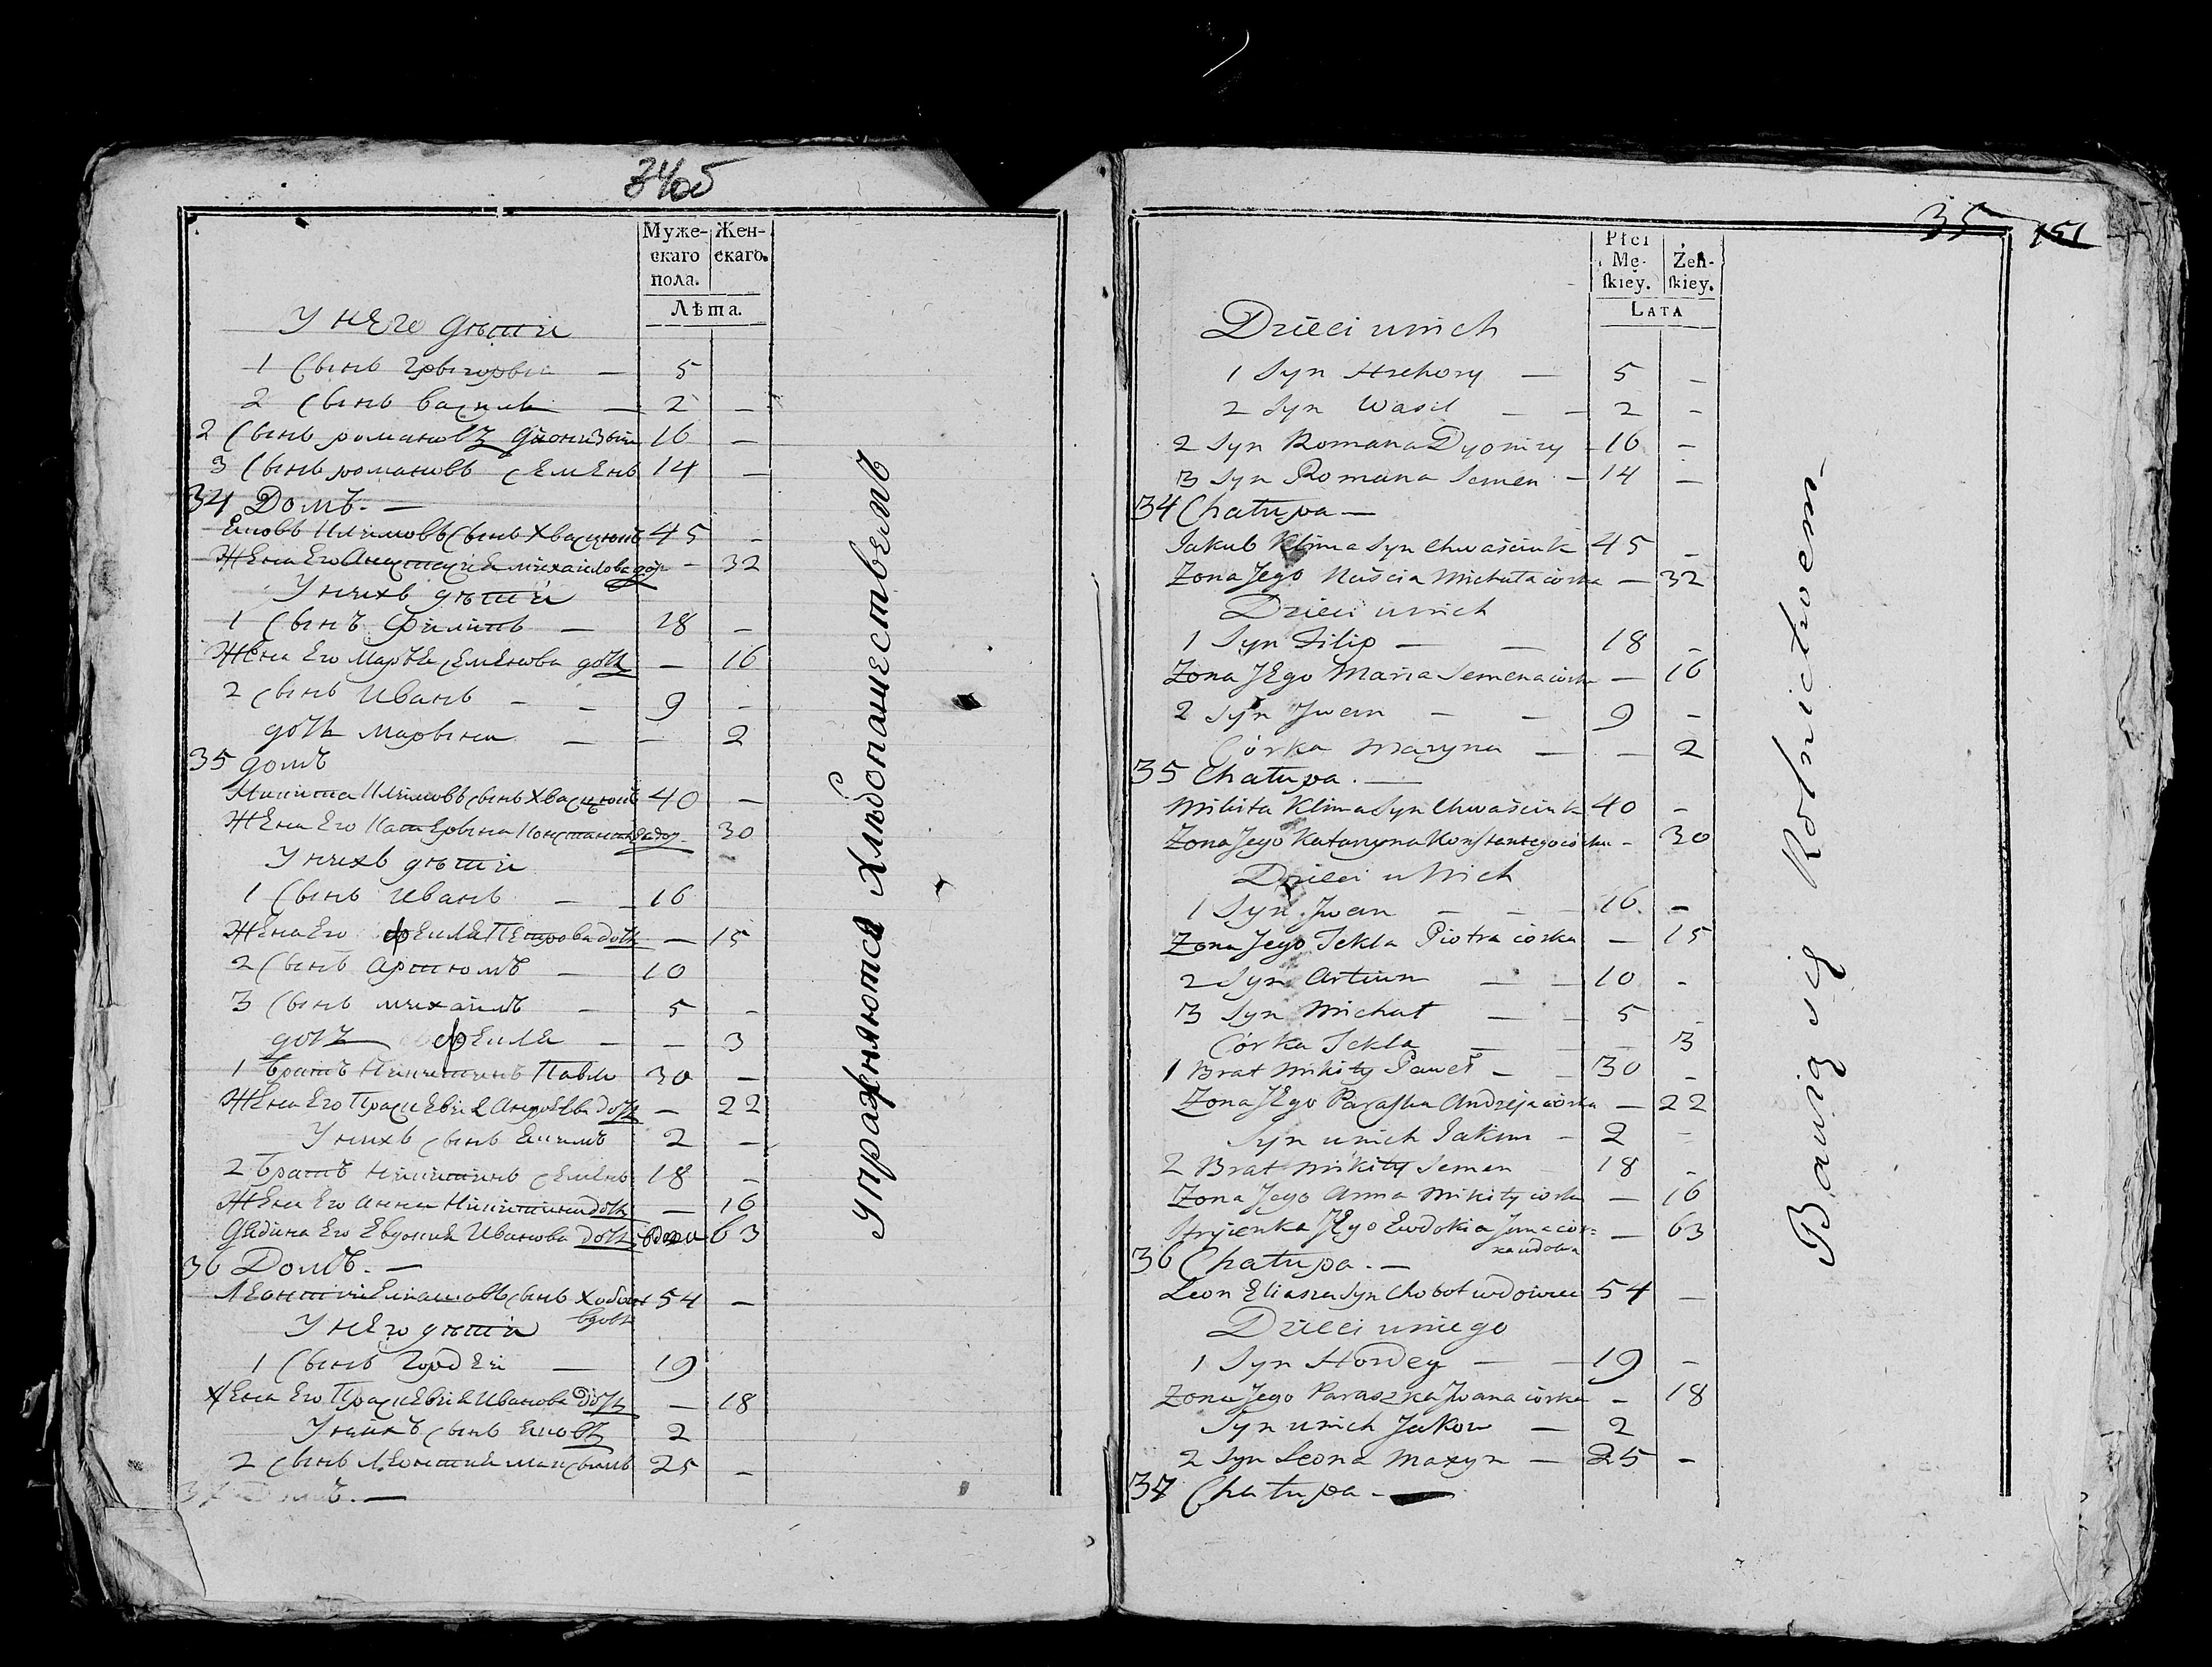 34об
Муже-
скаго
пола.
Жен-
скаго.
Лѣта.
У него дѣти
1 Сынъ Грыгорей — 5
2 Сынъ Василь — 2 —
2 Сынъ Романовъ Дионизый 16 —
3 Сынъ Романовъ Семенъ 14 —
34 Домъ. —
Яковъ Климовъ сынъ Хвасцюкъ 45 —
Жена Его Анастасия Михайлова доч — 32
У нихъ дѣти
1 Сынъ Филипъ — 18 —
Жена Его Марья Семенова дочь — 16
2 Сынъ Иванъ — — 9 —
дочь Марына — — 2
35 домъ
Микита Климовъ сынъ Хвасцюкъ 40 —
Жена Его Катерына 30
У нихъ дѣти
1 Сынъ Иванъ — — 16
Жена Его Фекла Петрова дочь — 15
2 Сынъ Артюмъ — 10
3 Сынъ Михайлъ — 5 —
дочь Фекла — — 3
1 Братъ Никитинъ Павло 30 —
Жена Его Праскевия дочь — 22
У нихъ сынъ Якимъ 2 —
2 Братъ Никитинъ Семенъ 18 —
Жена Его Анна Никитина дочь — 16
Дядина Его Евдокия Иванова дочь вдова 63
36 Домъ. —
Леонтий сынъ Хобот 54 —
вдовъ
У него дѣти
1 Сынъ Гордей — 19
Жена Его Праскевия Иванова дочь — 18
У нихъ сынъ Яковъ 2
2 Сынъ Леонтия Максымъ 25 —
37 Домъ. —
Упражняются Хлѣбопашествемъ
35 151
Płci
Mę-
ſkiey.
Żeń-
ſkiey.
LATA
Dzieci u nich
1 Syn Hrehory — 5 —
2 Syn Wasil — — 2 —
2 Syn Romana Dyonizy — 16 —
3 Syn Romana Semen — 14 —
34 Chałupa —
Jakub Klima Syn Chwaściuk 45 —
Zona Jego Naścia Michała córka — 32
Dzieci u nich
1 Syn Filip — — 18 —
Zona Jego Maria Semena córka — 16
2 Syn Jwan — — 9 —
Córka Maryna — — 2
35 Chałupa. —
Mikita Klima Syn Chwaściuk 40 —
Zona Jego Katarzyna Konstantego córka — 30
Dzieci u Nich
1 Syn Jwan — — 16 —
Zona Jego Tekla Piotra córka — 15
2 Syn Artium — — 10 —
3 Syn Michał — — 5
Córka Tekla — — 3
1 Brat Mikity Paweł — — 30 —
Zona Jego Paraska Andrzeja córka — 22
Syn u nich Jakim — 2 —
2 Brat Mikity Semen 18 —
Zona Jego Anna Mikity córka — 16
Stryienka Jego Ewdokia Jwana cór= — 63
ka wdowa
36 Chałupa. —
Leon Eliasza Syn Chobot wdowiec 54 —
Dzieci u niego
1 Syn Hordey — — 19 —
Zona Jego Paraszka Jwana córka — 18
Syn u nich Jakow — 2
2 Syn Leona Maxym — 25 —
37 Chałupa. —
Bawią się Rolnictwem —